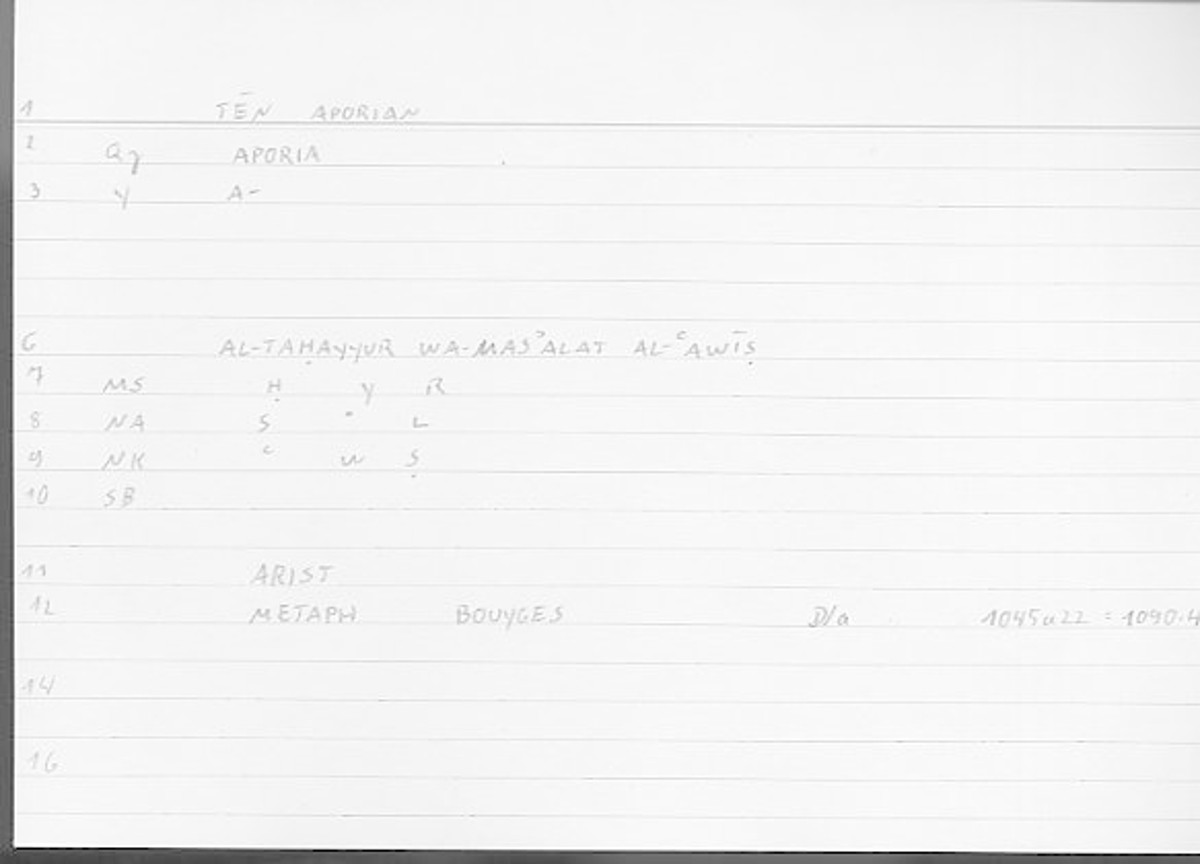 1 TĒN APORIAN
2 Qq APORIA
3 Y A-
6 AL-TAḤAYYUR WA-MASʾALAT AL-ʿAWĪṢ
7 MS Ḥ Y R
8 NA S ʾ L
9 NK ʿ W Ṣ
10 SB
11 ARIST
12 METAPH BOUYGES D/a 1045a22 = 1090.4
14
16